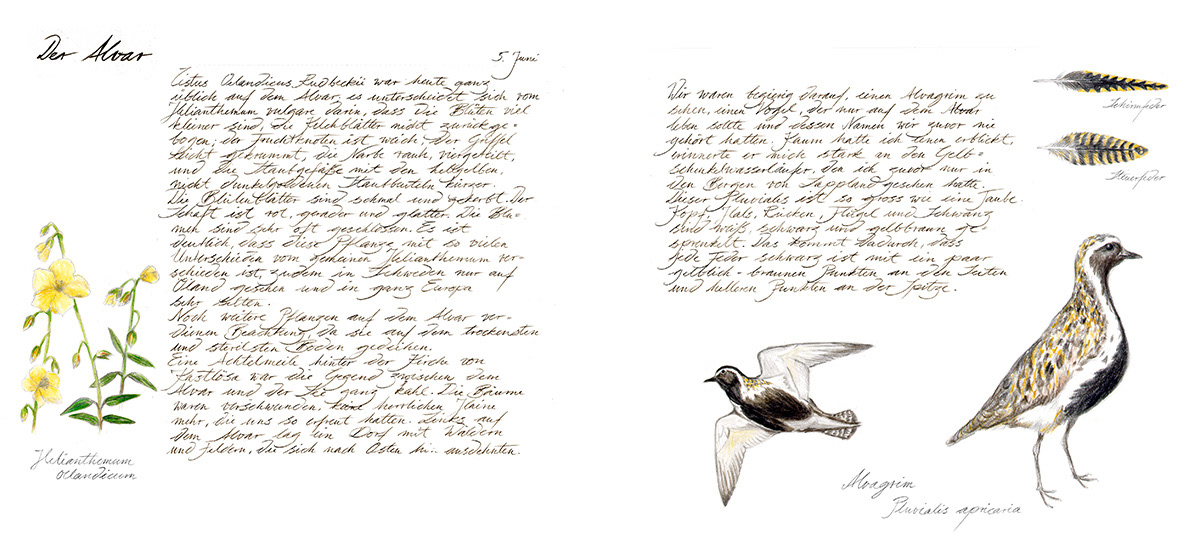 Der Alvar
5. Juni
Cistus Oelandicus Rudbeckii war heute ganz
üblich auf dem Alvar, es unterscheidet sich vom
Helianthemum vulgare darin, dass die Blüten viel
kleiner sind, die Kelchblätter nicht zurückge-
bogen; der Fruchtknoten ist weich; Der Griffel
leicht gekrümmt, die Narbe rauh, vergeteilt,
und die Staubgefäße mit den hellgelben,
nicht dunkelgoldenen Staubbeuteln kürzer.
Die Blütenblätter sind schmal und gekerbt. Der
Schaft ist rot, gerader und glatter. Die Blu-
men sind sehr oft geschlossen. Es ist
deutlich, dass diese Pflanze, mit so vielen
Unterschieden vom gemeinen Helianthemum ver-
schieden ist, zudem in Schweden nur auf
Öland gesehen und in ganz Europa
sehr selten.
Noch weitere Pflanzen auf dem Alvar ver-
dienen Beachtung, da sie auf dem trockensten
und sterilsten Boden gedeihen.
Eine Achtelmeile hinter der Kirche von
Kastlösa war die Gegend zwischen dem
Alvar und der See ganz kahl. Die Bäume
waren verschwunden, keine herrlichen Haine
mehr, die uns so erfreut hatten. Links auf
dem Alvar lag ein Dorf mit Wäldern
und Feldern, die sich nach Osten hin ausdehnten.
Helianthemum
oelandicum
Wir waren begierig darauf, einen Alvagrim zu
sehen, einen Vogel, der nur auf dem Alvar
leben sollte und dessen Namen wir zuvor nie
gehört hatten. Kaum hatte ich einen erblickt,
erinnerte er mich stark an den Gelb-
schenkelwasserläufer, den ich zuvor nur in
den Bergen von Lappland gesehen hatte.
Dieser Pluvialis ist so gross wie eine Taube.
Kopf, Hals, Rücken, Flügel und Schwanz
sind weiß, schwarz und gelbbraun ge-
sprenkelt. Das kommt dadurch, dass
jede Feder schwarz ist mit ein paar
gelblich-braunen Punkten an den Seiten
und helleren Punkten an der Spitze.
Schirmfeder
Steuerfeder
Alvagrim
Pluvialis apricaria